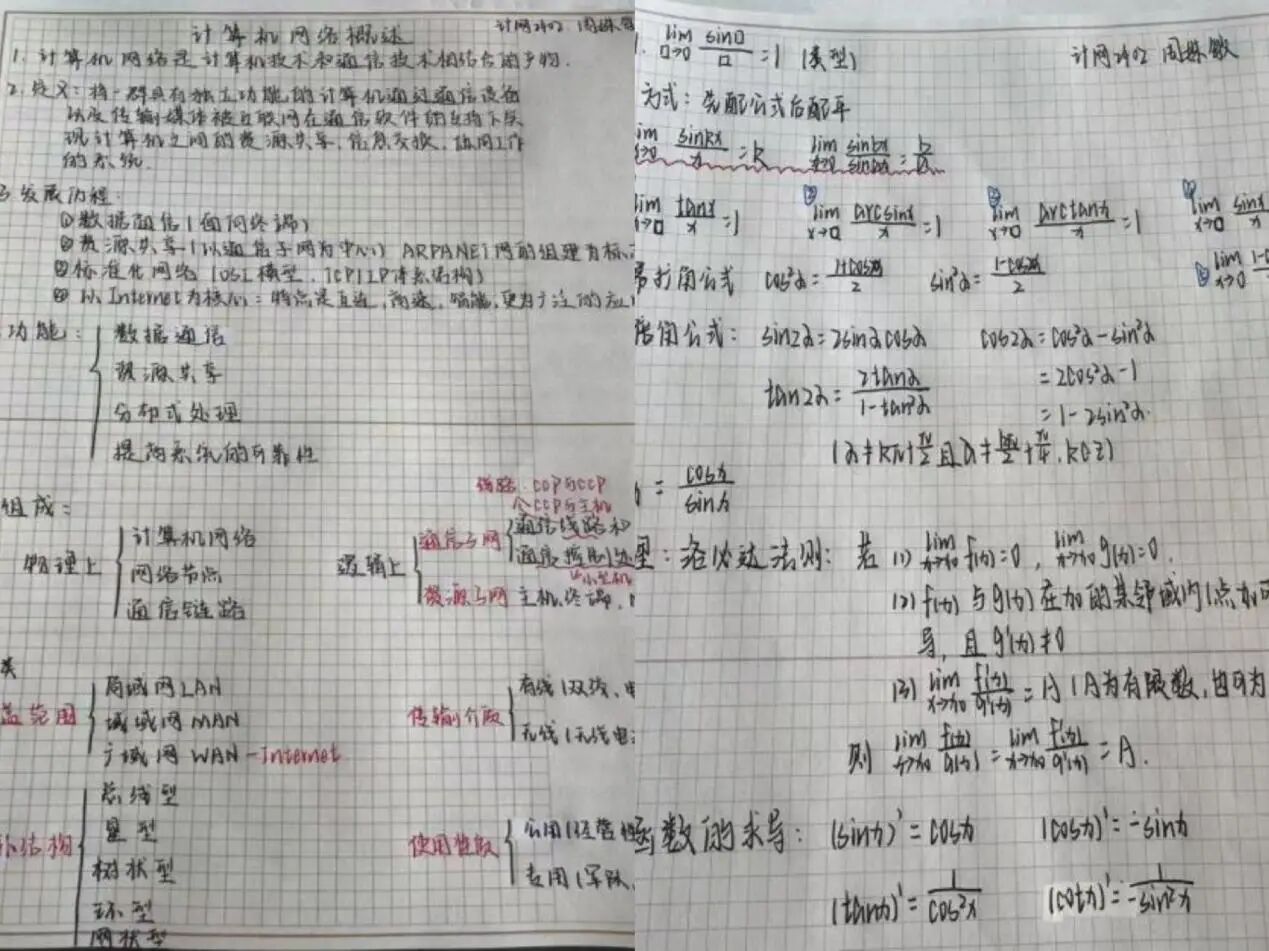 计算机网络概述
计网2402 周姝敏
1. 计算机网络是计算机技术和通信技术相结合的产物.
2. 定义: 将一群具有独立功能的计算机通过通信设备
以及传输媒体被互联网在通信软件的支持下实
现计算机之间的资源共享、信息交换、协同工作
的系统.
3. 发展历程:
①数据通信(面向终端)
②资源共享(以通信子网为中心) ARPANET网的组建为标
③标准化网络(OSI模型, TCP/IP体系结构)
④以Internet为核心: 特点是互连, 高速, 智能, 更为广泛的应
功能:
数据通信
资源共享
分布式处理
提高系统的可靠性
组成:
物理上
计算机网络
网络节点
通信链路
逻辑上
链路: CCP与CCP
CCP与主机
通信子网
通信线路和
通信控制处
小型机
资源子网
主机, 终端,
类
盖范围
局域网LAN
城域网MAN
广域网WAN-Internet
传输介质
有线(双绞、电
无线(无线电
扑结构
总线型
星型
树状型
环型
网状型
使用性质
公用(经营性
专用(军队、
1. lim □→0 sin□/□ =1 (类型)
计网2402 周姝敏
方式: 先配公式后配平
lim x→0 sinkx/x = k lim x→0 sinbx/sinax = b/a
lim x→0 tanx/x =1 ② lim x→0 arcsinx/x =1 ③ lim x→0 arctanx/x =1 ④ lim x→0 sinx/x
lim x→0 1-co
扩角公式 cos²α = 1+cos2α/2 sin²α = 1-cos2α/2
倍角公式: sin2α=2sinαcosα cos2α=cos²α-sin²α
tan2α = 2tanα/1-tan²α =2cos²α-1
=1-2sin²α.
(α≠kπ+π/2 且α≠kπ/2+π/4, k∈Z)
= cosx/sinx
型: 洛必达法则: 若 (1) lim x→x₀ f(x)=0, lim x→x₀ g(x)=0.
(2) f(x) 与g(x)在x₀的某邻域内(点x₀可
导, 且g'(x)≠0
(3) lim x→x₀ f'(x)/g'(x) = A (A为有限数, 也可为
则 lim x→x₀ f(x)/g(x) = lim x→x₀ f'(x)/g'(x) = A.
函数的求导: (sinx)'=cosx (cosx)'=-sinx
(tanx)' = 1/cos²x (cotx)' = -1/sin²x